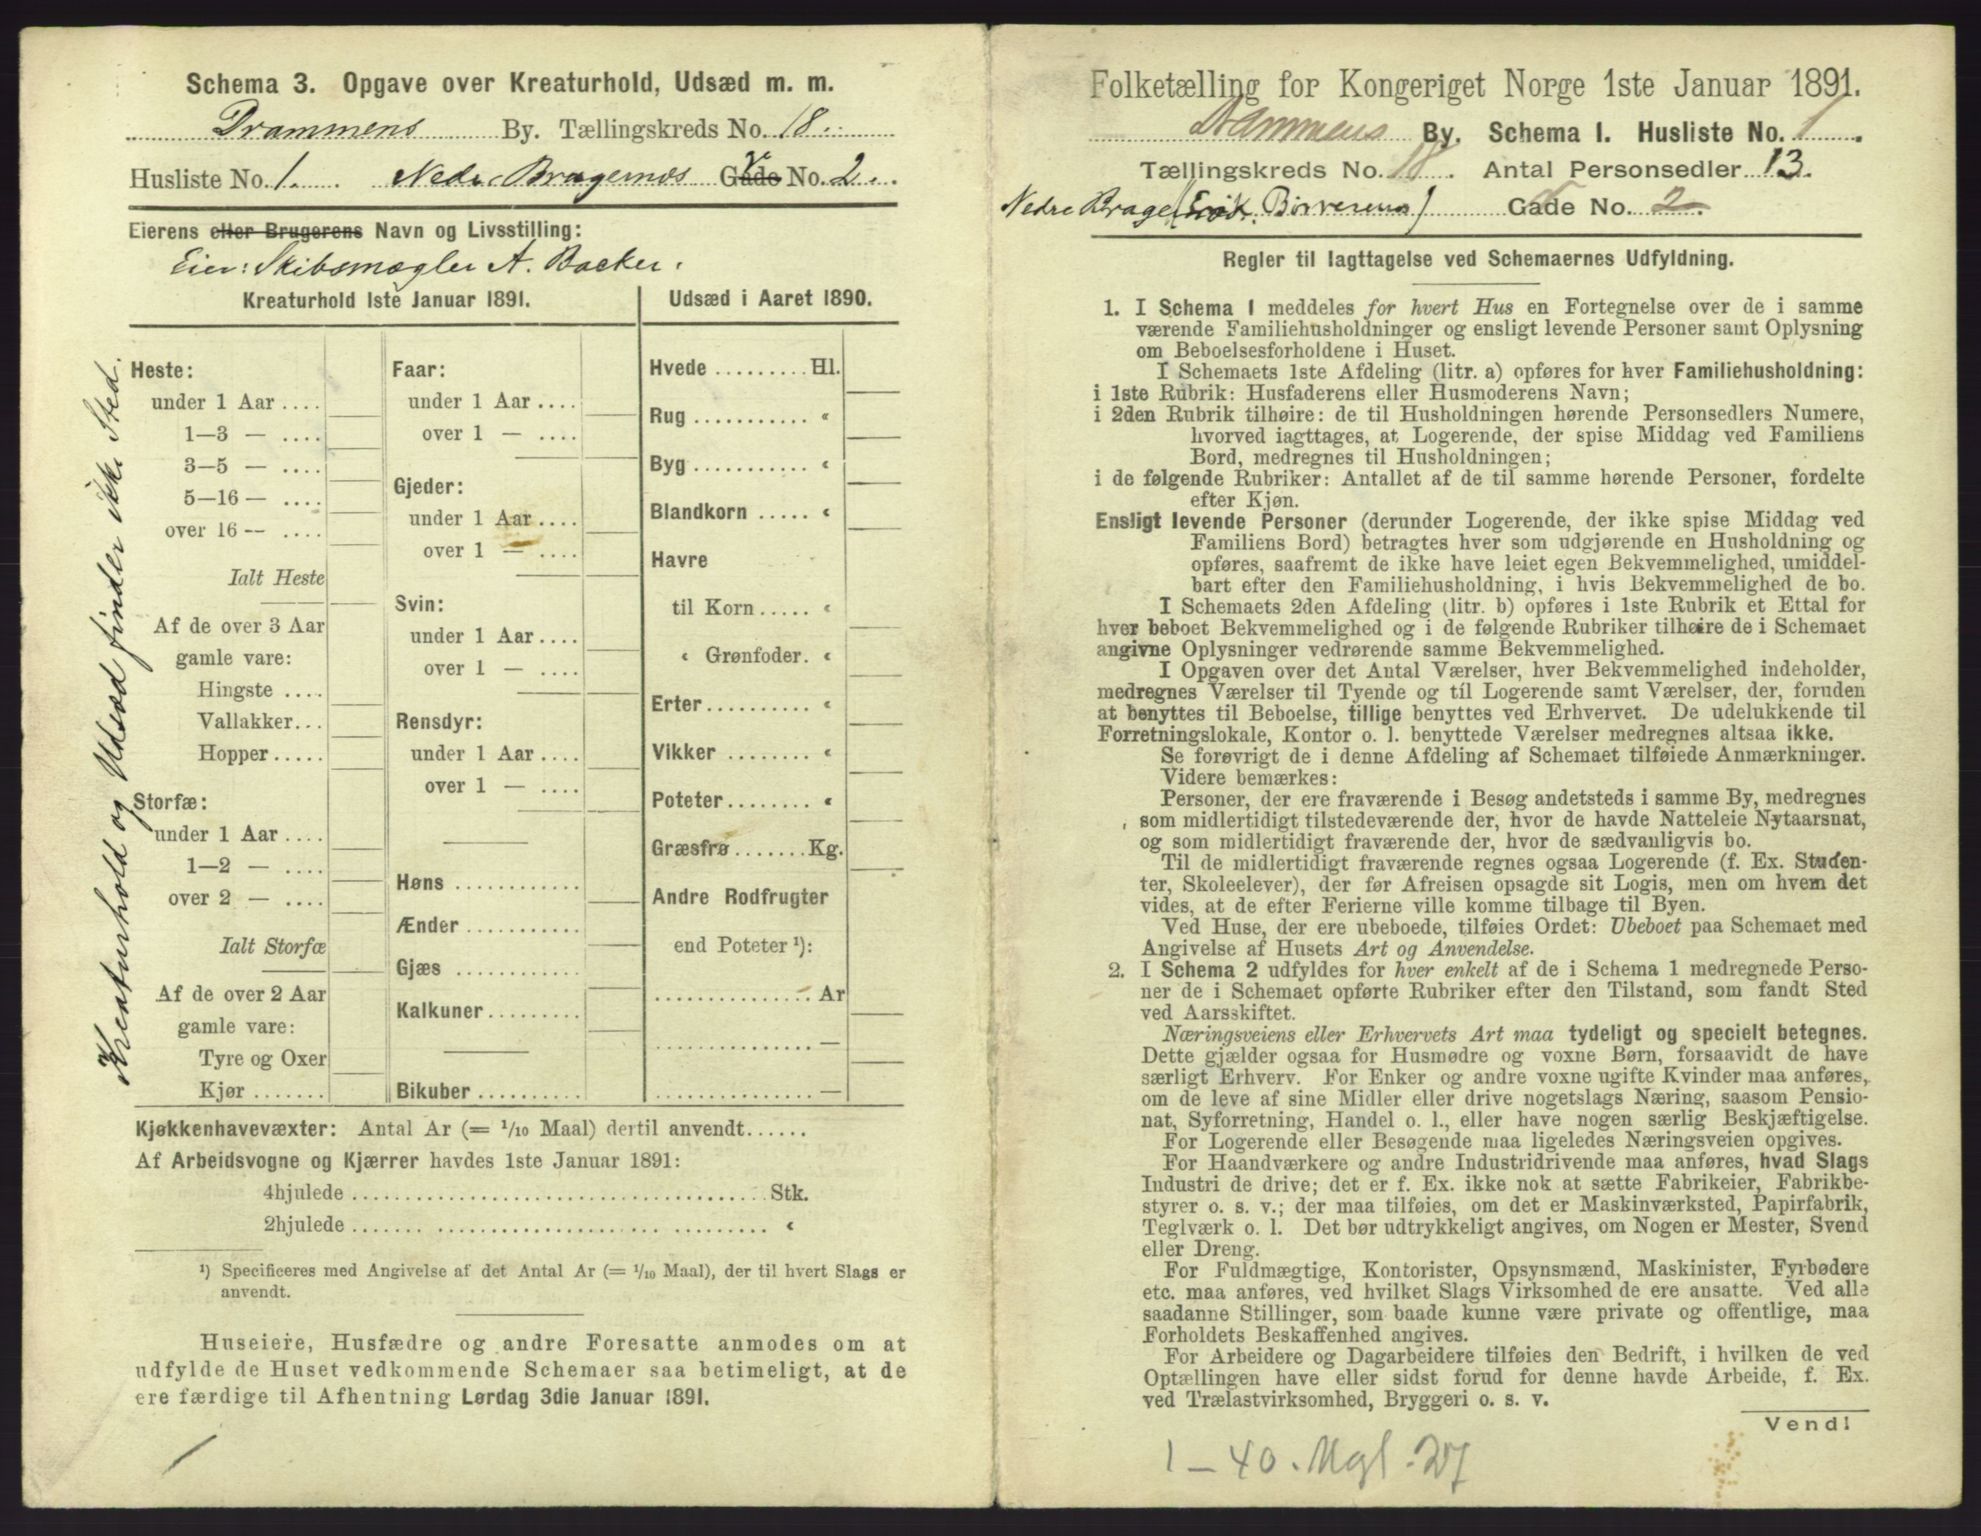 Schema 3. Opgave over Kreaturhold, Udsæd m. m.
Drammens By. Tællingskreds No. 18.
Husliste No. 1. Nedre Bragernæs Gade No. 2.
Eierens eller Brugerens Navn og Livsstilling:
Eier: Skibsmægler A. Backer.
Kreaturhold 1ste Januar 1891.
Udsæd i Aaret 1890.
Kreaturhold og Udsæd finder ikke Sted.
Heste:
under 1 Aar ....
1—3 — ....
3—5 — ....
5—16 — ....
over 16 — ....
Ialt Heste
Af de over 3 Aar
gamle vare:
Hingste ....
Vallakker...
Hopper .....
Storfæ:
under 1 Aar ....
1—2 — ....
over 2 — ....
Ialt Storfæ
Af de over 2 Aar
gamle vare:
Tyre og Oxer
Kjør .......
Faar:
under 1 Aar ....
over 1 — ....
Gjeder:
under 1 Aar ....
over 1 — ....
Svin:
under 1 Aar ....
over 1 — ....
Rensdyr:
under 1 Aar ....
over 1 — ....
Høns ............
Ænder ...........
Gjæs ............
Kalkuner.........
Bikuber ..........
Hvede ......... Hl.
Rug ........... «
Byg ........... «
Blandkorn ..... «
Havre
til Korn ..... «
« Grønfoder. «
Erter.......... «
Vikker ........ «
Poteter........ «
Græsfrø ....... Kg.
Andre Rodfrugter
end Poteter ¹):
............... Ar
............... —
............... —
Kjøkkenhavevæxter: Antal Ar (= 1/10 Maal) dertil anvendt......
Af Arbeidsvogne og Kjærrer havdes 1ste Januar 1891:
4hjulede ........................................ Stk.
2hjulede ........................................ «
¹) Specificeres med Angivelse af det Antal Ar (= 1/10 Maal), der til hvert Slags er
anvendt.
Huseiere, Husfædre og andre Foresatte anmodes om at
udfylde de Huset vedkommende Schemaer saa betimeligt, at de
ere færdige til Afhentning Lørdag 3die Januar 1891.
Folketælling for Kongeriget Norge 1ste Januar 1891.
Drammens By. Schema I. Husliste No. 1.
Tællingskreds No. 18. Antal Personsedler 13.
Nedre Gade No. 2.
Regler til Iagttagelse ved Schemaernes Udfyldning.
1. I Schema 1 meddeles for hvert Hus en Fortegnelse over de i samme
værende Familiehusholdninger og ensligt levende Personer samt Oplysning
om Beboelsesforholdene i Huset.
I Schemaets 1ste Afdeling (litr. a) opføres for hver Familiehusholdning:
i 1ste Rubrik: Husfaderens eller Husmoderens Navn;
i 2den Rubrik tilhøire: de til Husholdningen hørende Personsedlers Numere,
hvorved iagttages, at Logerende, der spise Middag ved Familiens
Bord, medregnes til Husholdningen;
i de følgende Rubriker: Antallet af de til samme hørende Personer, fordelte
efter Kjøn.
Ensligt levende Personer (derunder Logerende, der ikke spise Middag ved
Familiens Bord) betragtes hver som udgjørende en Husholdning og
opføres, saafremt de ikke have leiet egen Bekvemmelighed, umiddel-
bart efter den Familiehusholdning, i hvis Bekvemmelighed de bo.
I Schemaets 2den Afdeling (litr. b) opføres i 1ste Rubrik et Ettal for
hver beboet Bekvemmelighed og i de følgende Rubriker tilhøire de i Schemaet
angivne Oplysninger vedrørende samme Bekvemmelighed.
I Opgaven over det Antal Værelser, hver Bekvemmelighed indeholder,
medregnes Værelser til Tyende og til Logerende samt Værelser, der, foruden
at benyttes til Beboelse, tillige benyttes ved Erhvervet. De udelukkende til
Forretningslokale, Kontor o. l. benyttede Værelser medregnes altsaa ikke.
Se forøvrigt de i denne Afdeling af Schemaet tilføiede Anmærkninger.
Videre bemærkes:
Personer, der ere fraværende i Besøg andetsteds i samme By, medregnes
som midlertidigt tilstedeværende der, hvor de havde Natteleie Nytaarsnat,
og som midlertidigt fraværende der, hvor de sædvanligvis bo.
Til de midlertidigt fraværende regnes ogsaa Logerende (f. Ex. Studen-
ter, Skoleelever), der før Afreisen opsagde sit Logis, men om hvem det
vides, at de efter Ferierne ville komme tilbage til Byen.
Ved Huse, der ere ubeboede, tilføies Ordet: Ubeboet paa Schemaet med
Angivelse af Husets Art og Anvendelse.
2. I Schema 2 udfyldes for hver enkelt af de i Schema 1 medregnede Perso-
ner de i Schemaet opførte Rubriker efter den Tilstand, som fandt Sted
ved Aarsskiftet.
Næringsveiens eller Erhvervets Art maa tydeligt og specielt betegnes.
Dette gjælder ogsaa for Husmødre og voxne Børn, forsaavidt de have
særligt Erhverv. For Enker og andre voxne ugifte Kvinder maa anføres,
om de leve af sine Midler eller drive nogetslags Næring, saasom Pensio-
nat, Syforretning, Handel o. l., eller have nogen særlig Beskjæftigelse.
For Logerende eller Besøgende maa ligeledes Næringsveien opgives.
For Haandværkere og andre Industridrivende maa anføres, hvad Slags
Industri de drive; det er f. Ex. ikke nok at sætte Fabrikeier, Fabrikbe-
styrer o. s. v.; der maa tilføies, om det er Maskinværksted, Papirfabrik,
Teglværk o. l. Det bør udtrykkeligt angives, om Nogen er Mester, Svend
eller Dreng.
For Fuldmægtige, Kontorister, Opsynsmænd, Maskinister, Fyrbødere
etc. maa anføres, ved hvilket Slags Virksomhed de ere ansatte. Ved alle
saadanne Stillinger, som baade kunne være private og offentlige, maa
Forholdets Beskaffenhed angives.
For Arbeidere og Dagarbeidere tilføies den Bedrift, i hvilken de ved
Optællingen have eller sidst forud for denne havde Arbeide, f. Ex.
ved Trælastvirksomhed, Bryggeri o. s. v.
Vend!
1 — 40. Mgl. 27